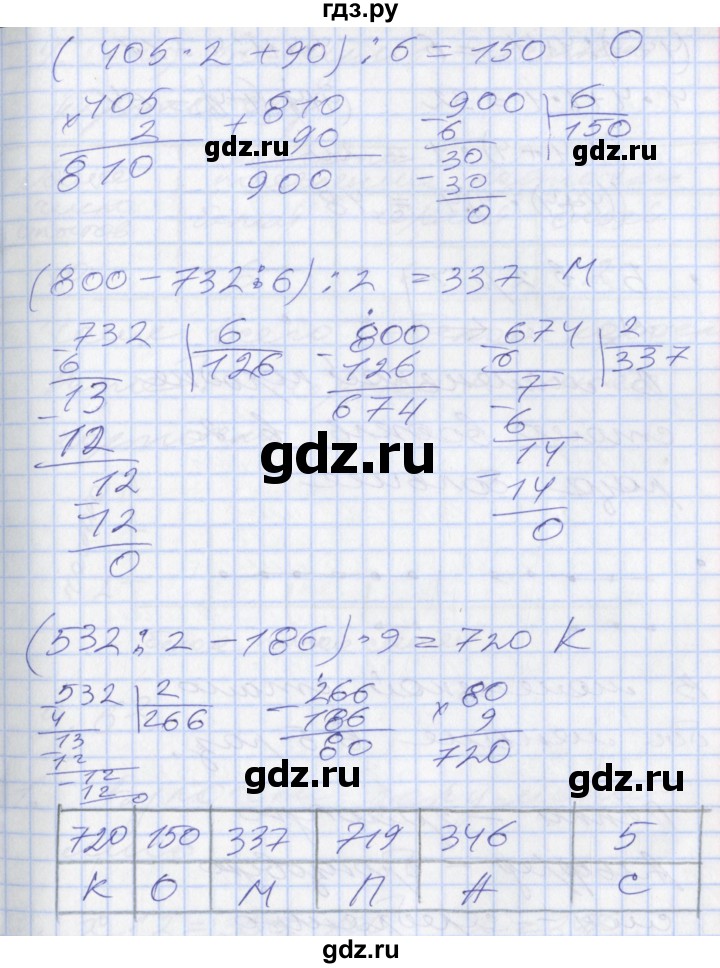 гдз.ру
(405·2+90):6=150 О
405 810 900 6
× 2 + 90 - 6 150
810 900 30
- 30
0
gdz.ru gdz.ru
(800-732:6):2=337 М
-732 6 -800 -674 2
6 126 126 6 337
13 674 7
-12 -6
12 14
-12 -14
0 0
gdz.ru
(532:2-186)·9=720 К
-532 2 -266 80
4 266 186 × 9
13 80 720
-12
-12
12 0
gdz.ru gdz.ru
720 150 337 719 346 5
К О М П А С
gdz.ru